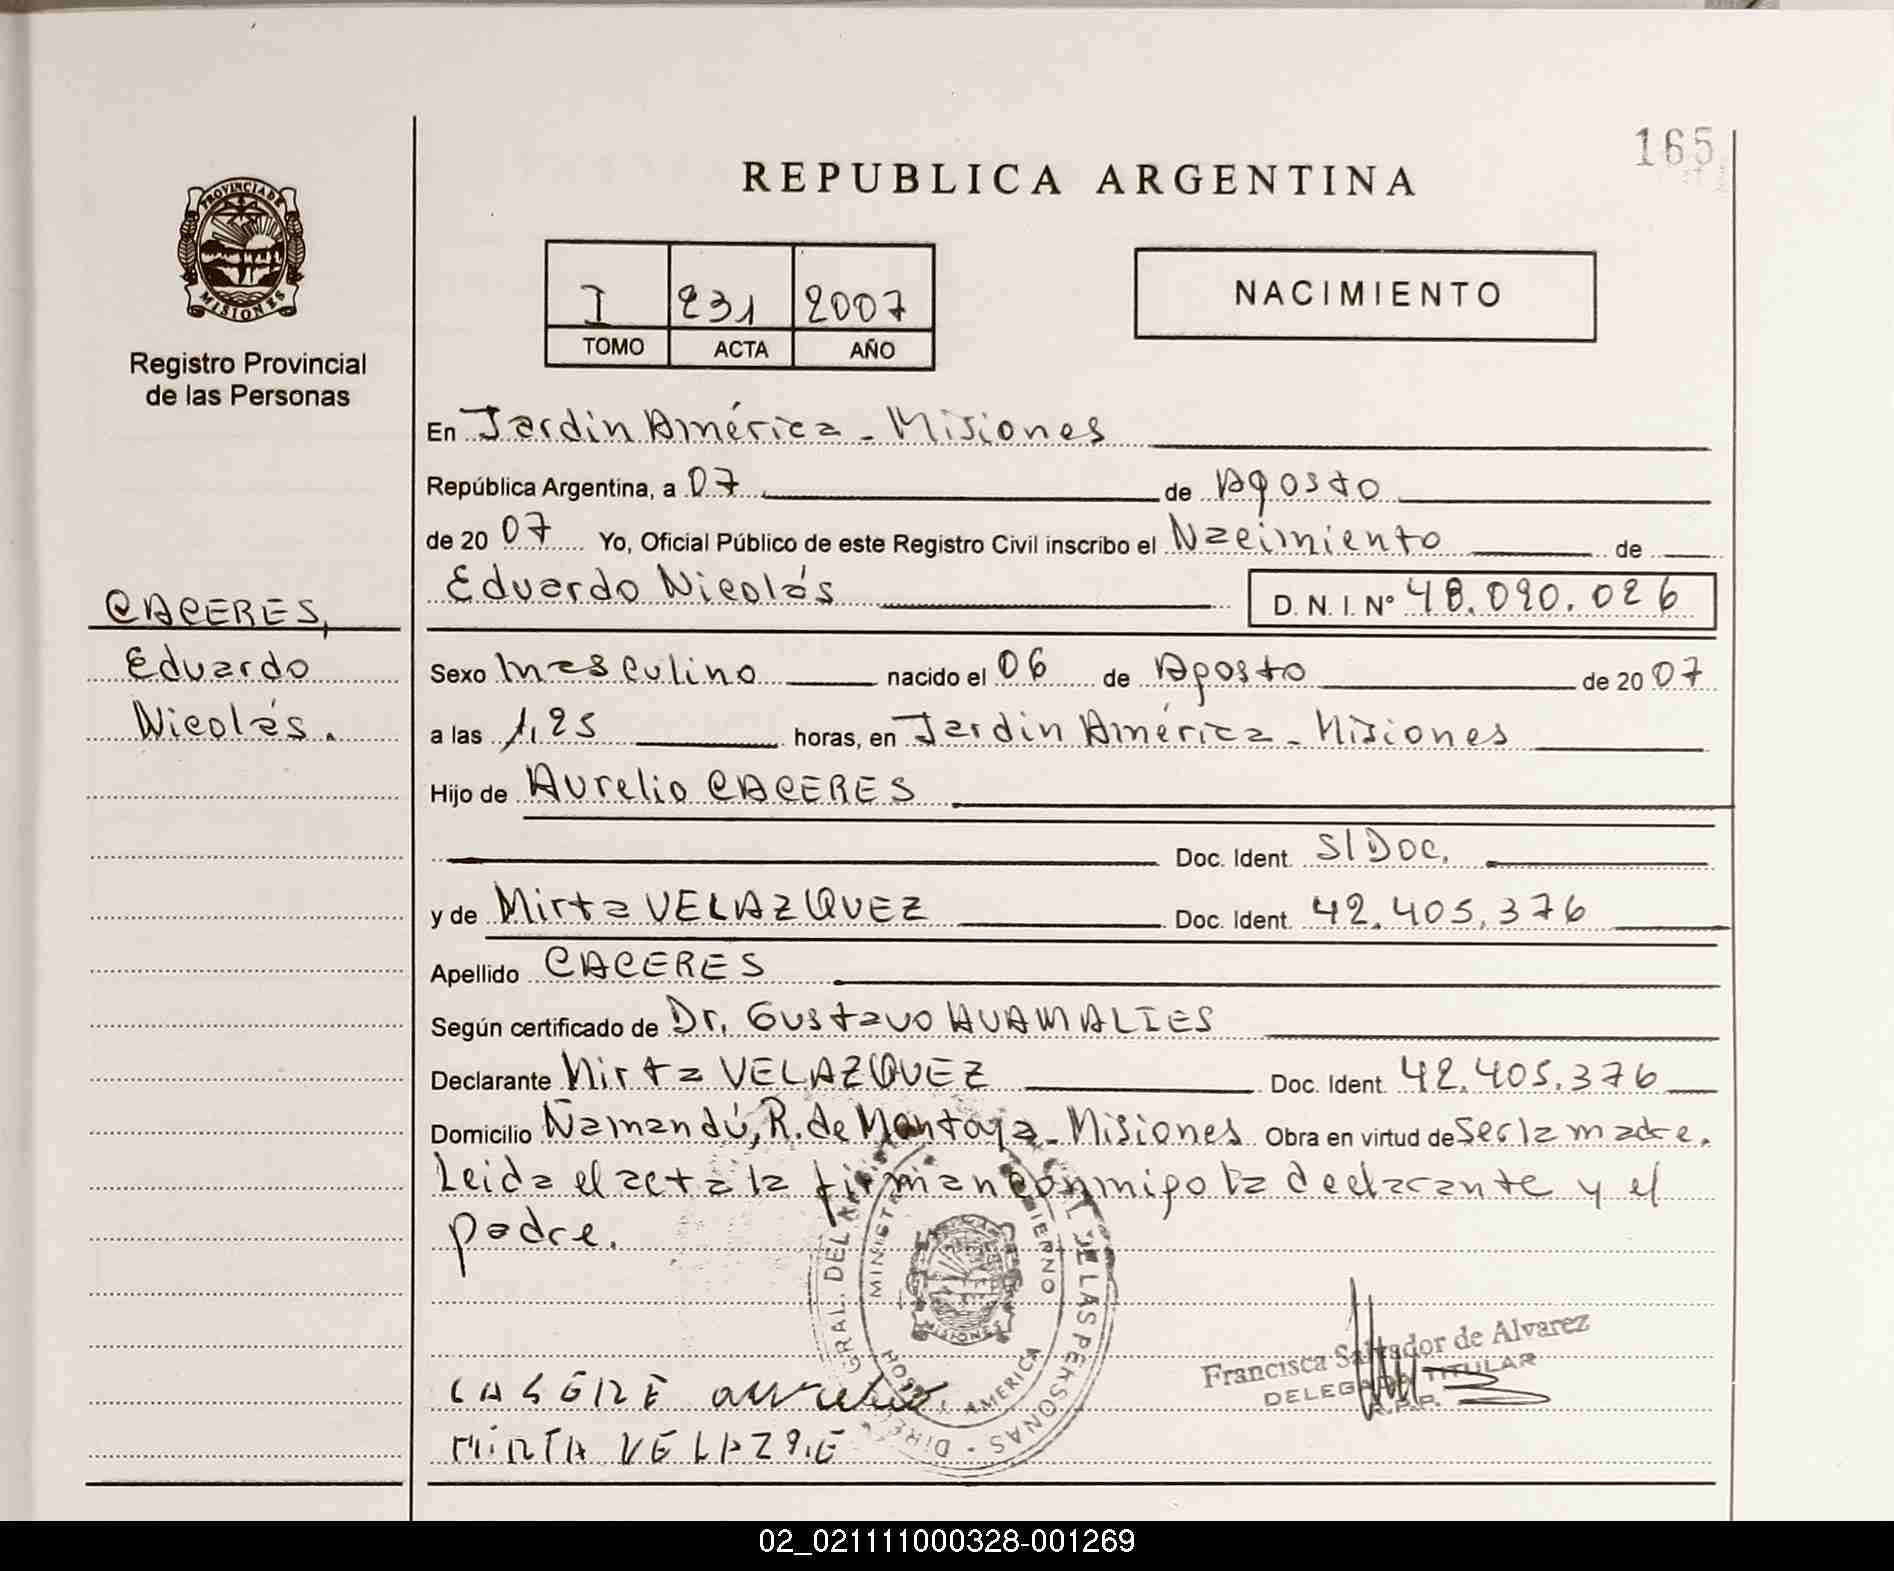 165
REPUBLICA ARGENTINA
PROVINCIA DE
MISIONES
Registro Provincial
de las Personas
I 231 2007
TOMO ACTA AÑO
NACIMIENTO
En Jardin América - Misiones
República Argentina, a 07 de Agosto
de 20 07 Yo, Oficial Público de este Registro Civil inscribo el Nacimiento de
Eduardo Nicolás D. N. I. Nº 48.090.026
CACERES,
Eduardo
Nicolás.
Sexo masculino nacido el 06 de Agosto de 20 07
a las 1,25 horas, en Jardin América - Misiones
Hijo de Aurelio CACERES
Doc. Ident. S/Doc.
y de Mirta VELAZQUEZ Doc. Ident. 42.405.376
Apellido CACERES
Según certificado de Dr. Gustavo HUAMALIES
Declarante Mirta VELAZQUEZ Doc. Ident. 42.405.376
Domicilio Ñamandú, R. de Montoya - Misiones Obra en virtud de Ser la madre.
Leida el acta la firman conmigo la declarante y el
padre.
GRAL. DEL DE LAS PERSONAS - DIREC
GOBIERNO
MISIONES
AMERICA
Francisca Salvador de Alvarez
DELEGADA TITULAR
R.P.P.
CASERE aurelio
MiRTA VELAZQ.E
02_021111000328-001269